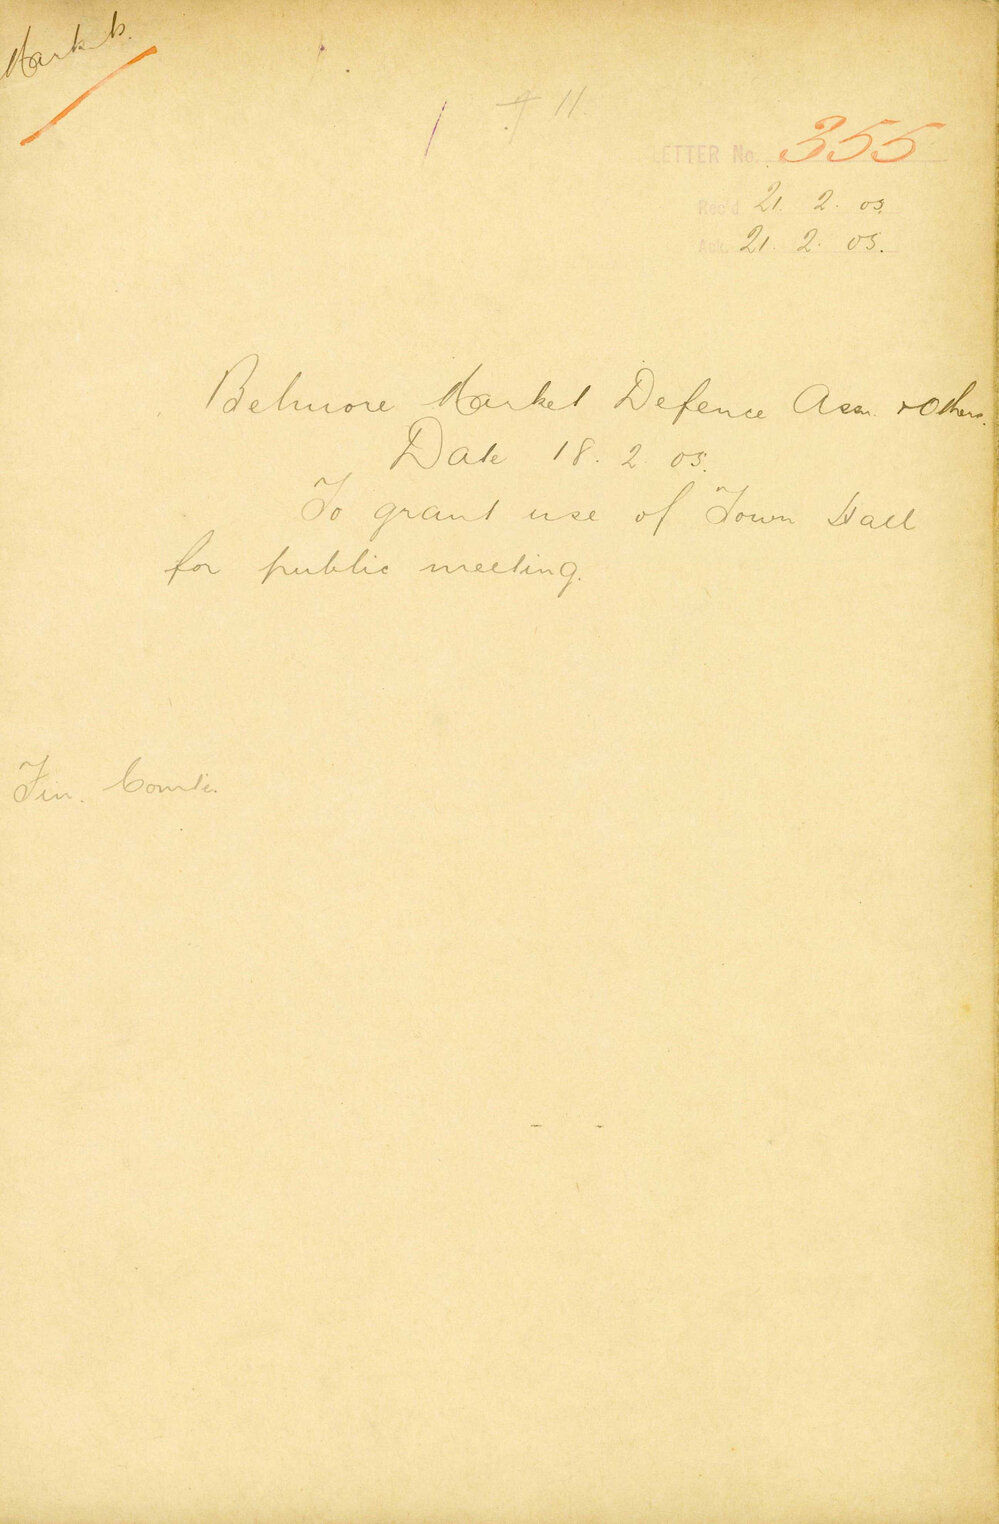 Markets.
11.
LETTER No. 355
Rec'd 21. 2. 05.
Ack. 21. 2. 05.
Belmore Market Defence Assn. & Others.
Date 18. 2. 05.
To grant use of Town Hall
for public meeting.
Fin. Comte.